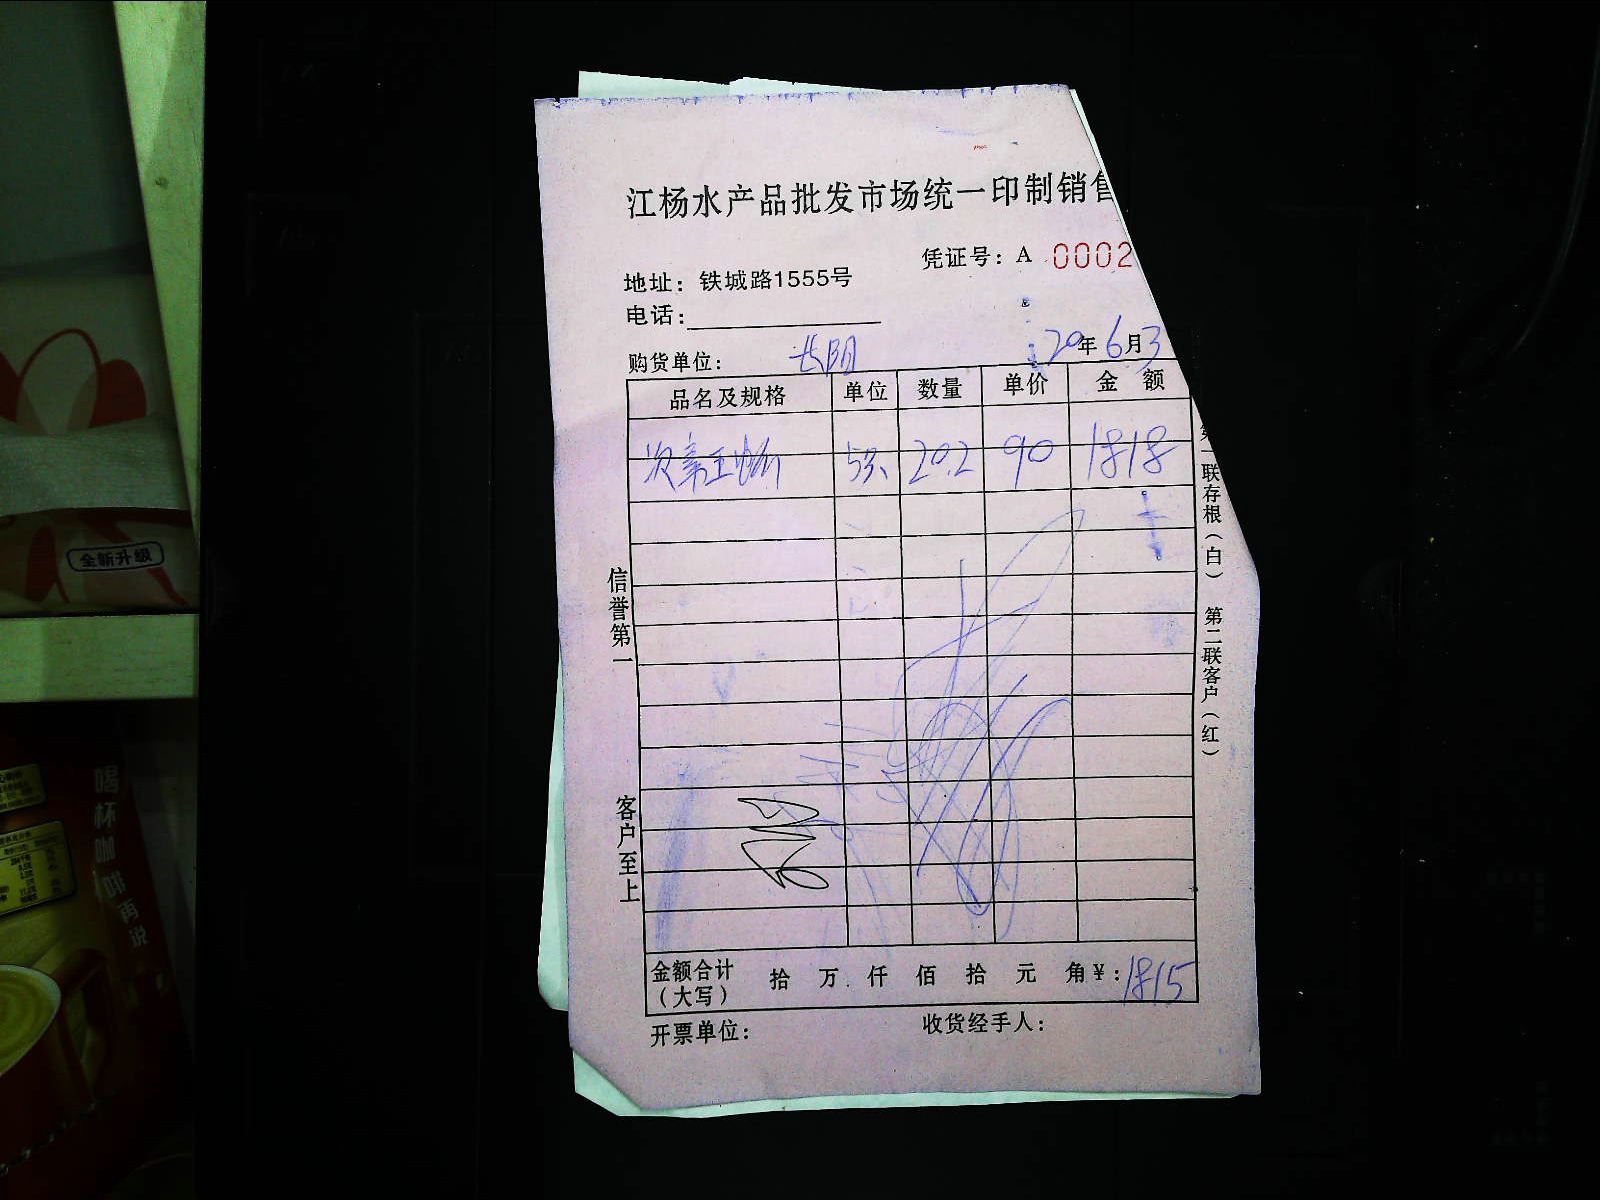 江杨水产品批发市场统一印制销售
凭证号：A 0002
地址：铁城路1555号
电话：
20年6月3
购货单位：
品名及规格 单位 数量 单价 金额
20.2 90 1818
第一联存根（白） 第二联客户（红）
信誉第一
客户至上
金额合计（大写） 拾 万 仟 佰 拾 元 角 ¥：1815
开票单位： 收货经手人：
全新升级
喝杯咖啡再说